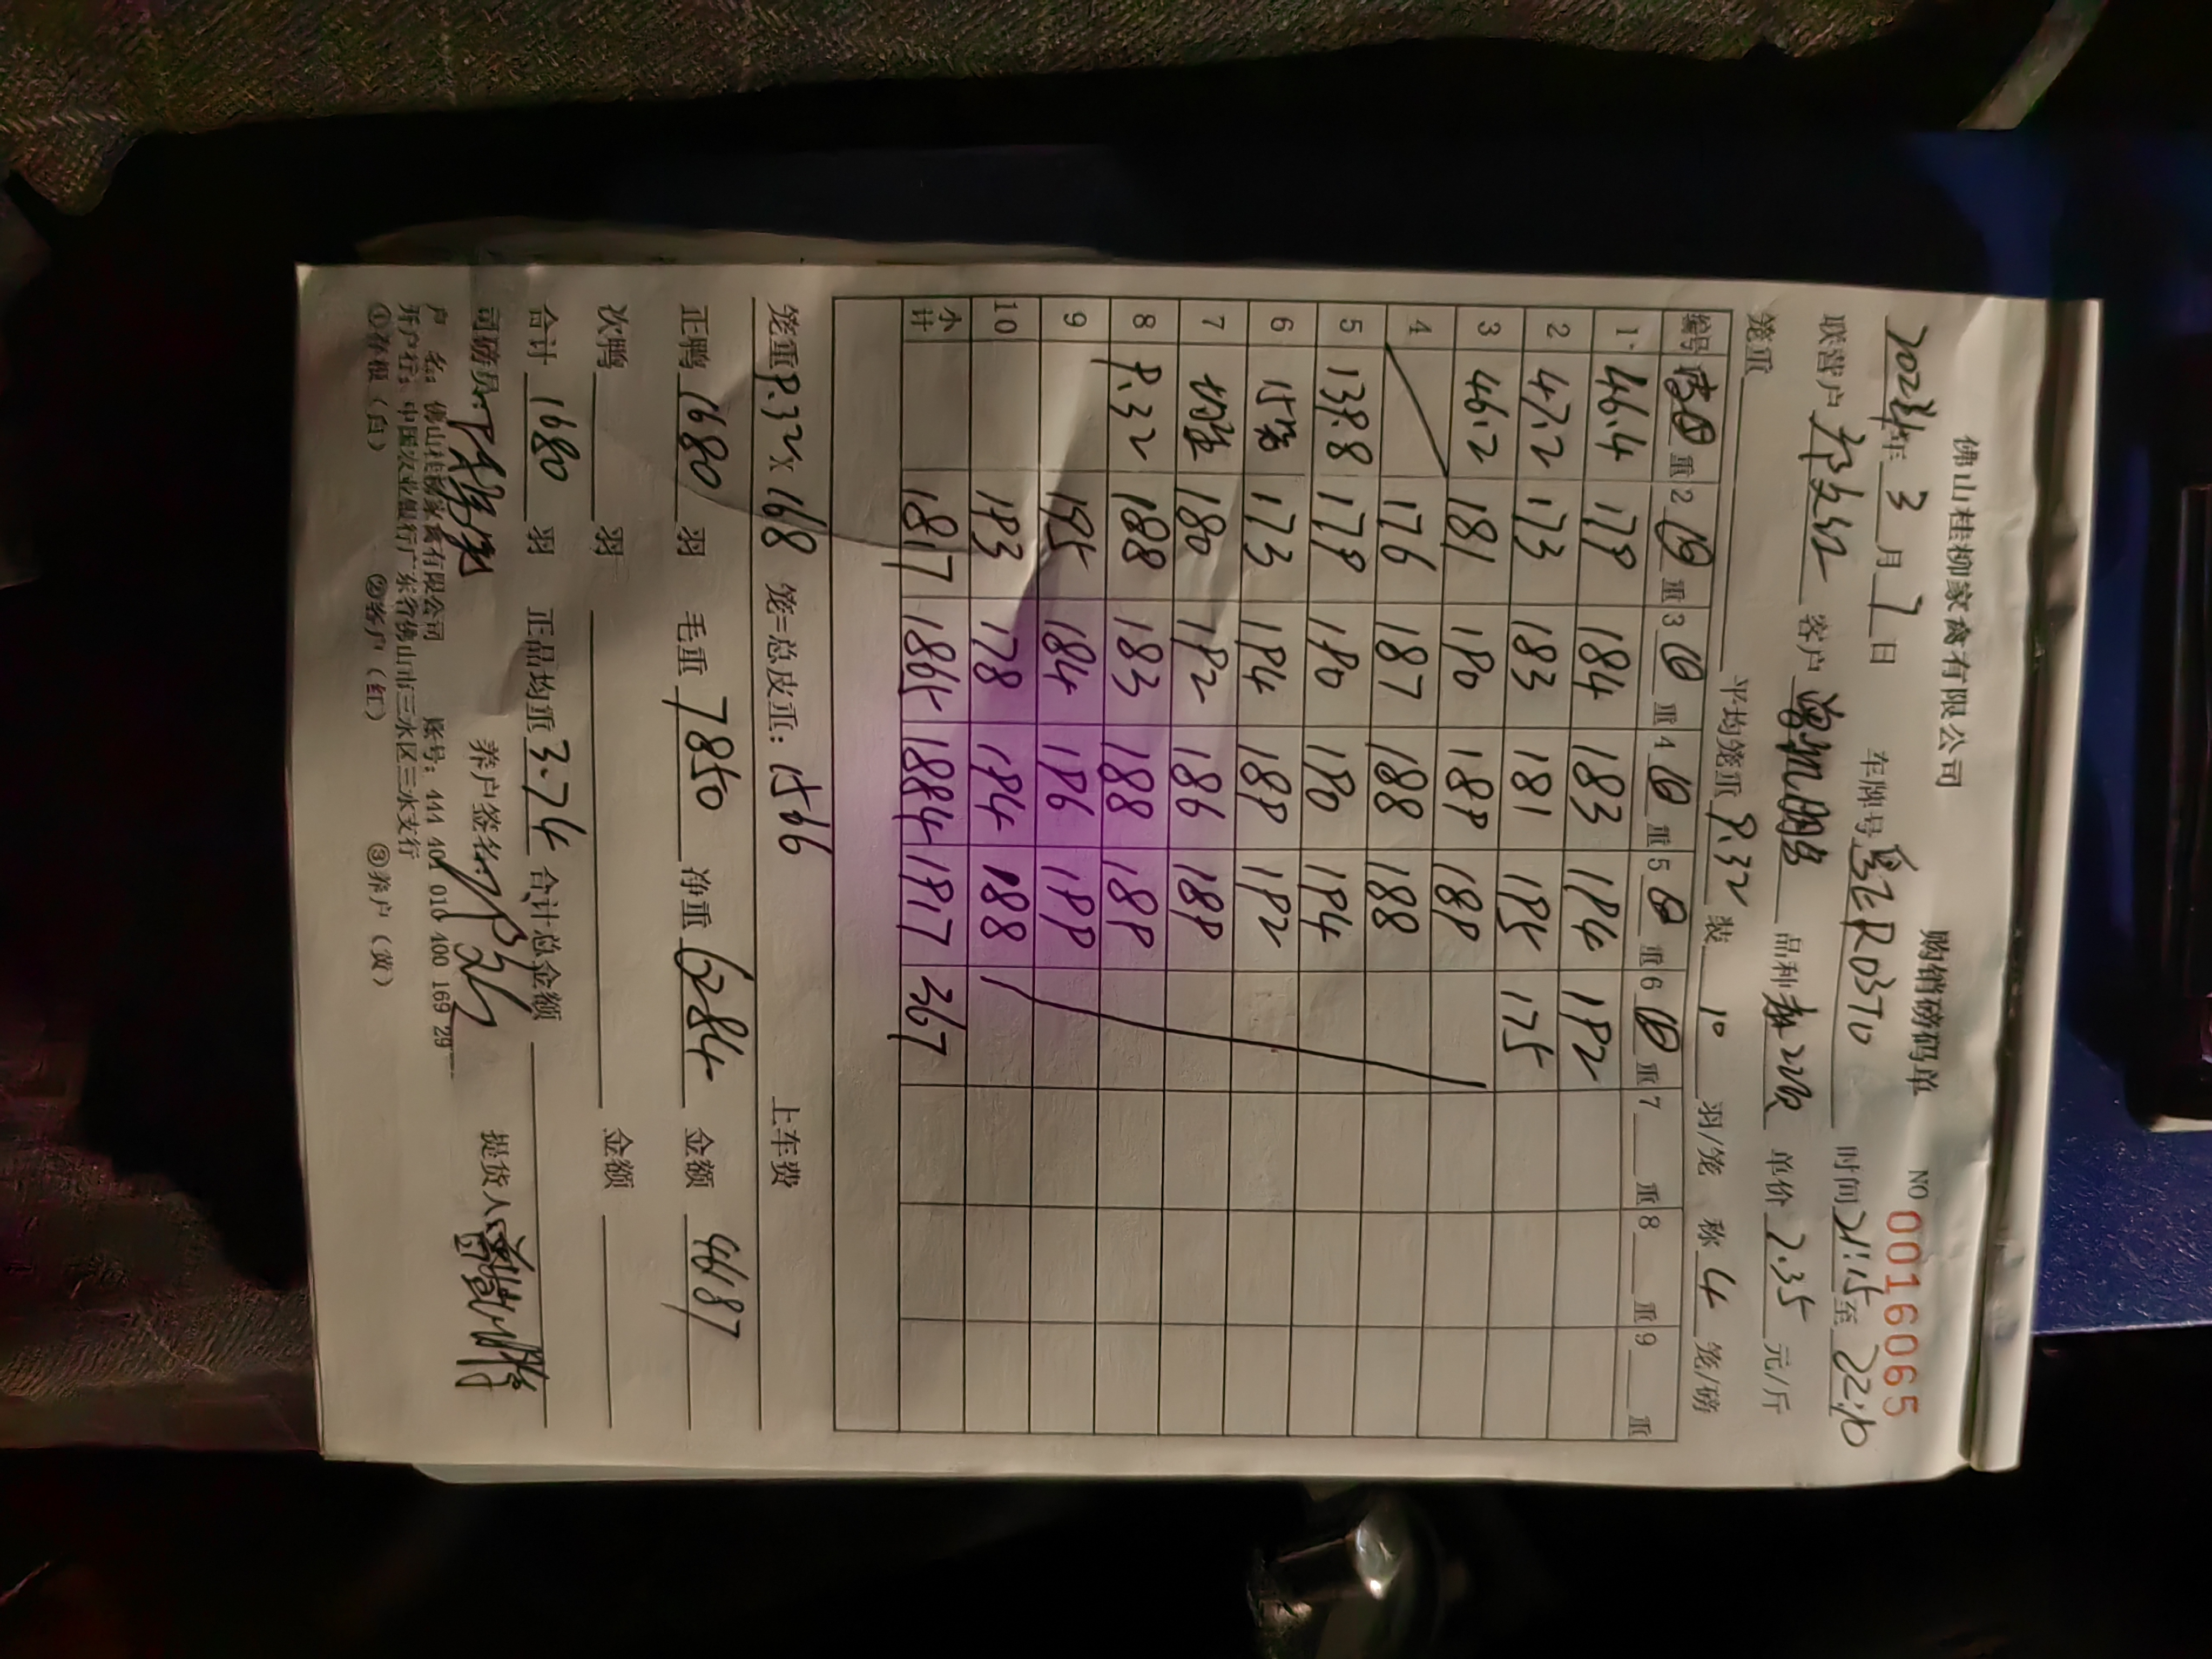 佛山桂柳家禽有限公司 购销磅码单 NO 0016065
年 3 月 7 日 车牌号 时间 21:15 至 22:10
联营户 客户 品种 单价 2.35 元/斤
笼重 平均笼重 9.32 装 10 羽/笼 称 4 笼/磅
编号 重 2 重 3 重 4 重 5 重 6 重 7 重 8 重 9 重
1 46.4 179 184 183 194 192
2 47.2 173 183 181 195 175
3 46.2 181 190 189 189
4 176 187 188 188
5 139.8 179 190 190 194
6 15笼 173 194 189 192
7 180 192 186 189
8 9.32 188 183 188 189
9 195 184 196 199
10 193 178 194 188
小计 1817 1865 1884 1917 367
笼重 9.32 x 168 笼=总皮重: 1566 上车费
正鸭 1680 羽 毛重 7850 净重 6284 金额
次鸭 羽 金额
合计 1680 羽 正品均重 3.74 合计总金额
司磅员 养户签名 提货人
户 名: 佛山桂柳家禽有限公司 账号: 444 401 010 400 169 29
开户行: 中国农业银行广东省佛山市三水区三水支行
①存根（白） ②客户（红） ③养户（黄）